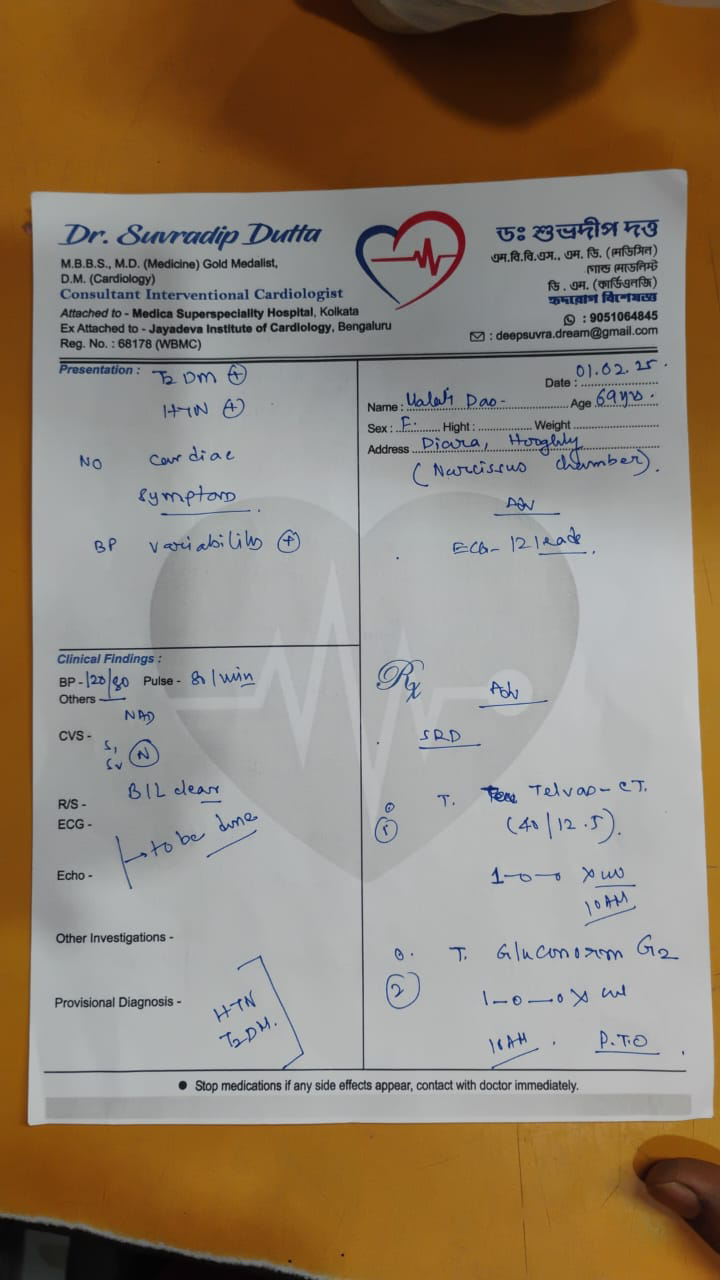 Dr. Suvradip Dutta
M.B.B.S., M.D. (Medicine) Gold Medalist,
D.M. (Cardiology)
Consultant Interventional Cardiologist
Attached to - Medica Superspeciality Hospital, Kolkata
Ex Attached to - Jayadeva Institute of Cardiology, Bengaluru
Reg. No. : 68178 (WBMC)
ডঃ শুভ্রদীপ দত্ত
এম.বি.বি.এস., এম. ডি. (মেডিসিন)
গোল্ড মেডেলিস্ট
ডি . এম. (কার্ডিওলজি)
হৃদরোগ বিশেষজ্ঞ
: 9051064845
: deepsuvra.dream@gmail.com
Presentation :
T2 DM (+)
HTN (+)
NO cardiac
symptoms
BP variability (+)
Date : 01.02.25.
Name : Das Age 69 yrs.
Sex : F. Hight : Weight
Address Diara, Hooghly
(Narcissus chamber).
Adv
ECG - 12 leads.
Clinical Findings :
BP - 120/80 Pulse - 80/min
Others -
NAD
CVS - S1
(N)
R/S - B/L clear
ECG -
→ to be done
Echo -
Other Investigations -
Provisional Diagnosis -
HTN
T2DM.
Rx
Adv
SRD
1 T. Telvas-CT.
(40/12.5).
1-0-0
10AM
2 T. Gluconorm G2
1-0-0
10AM. P.T.O.
● Stop medications if any side effects appear, contact with doctor immediately.